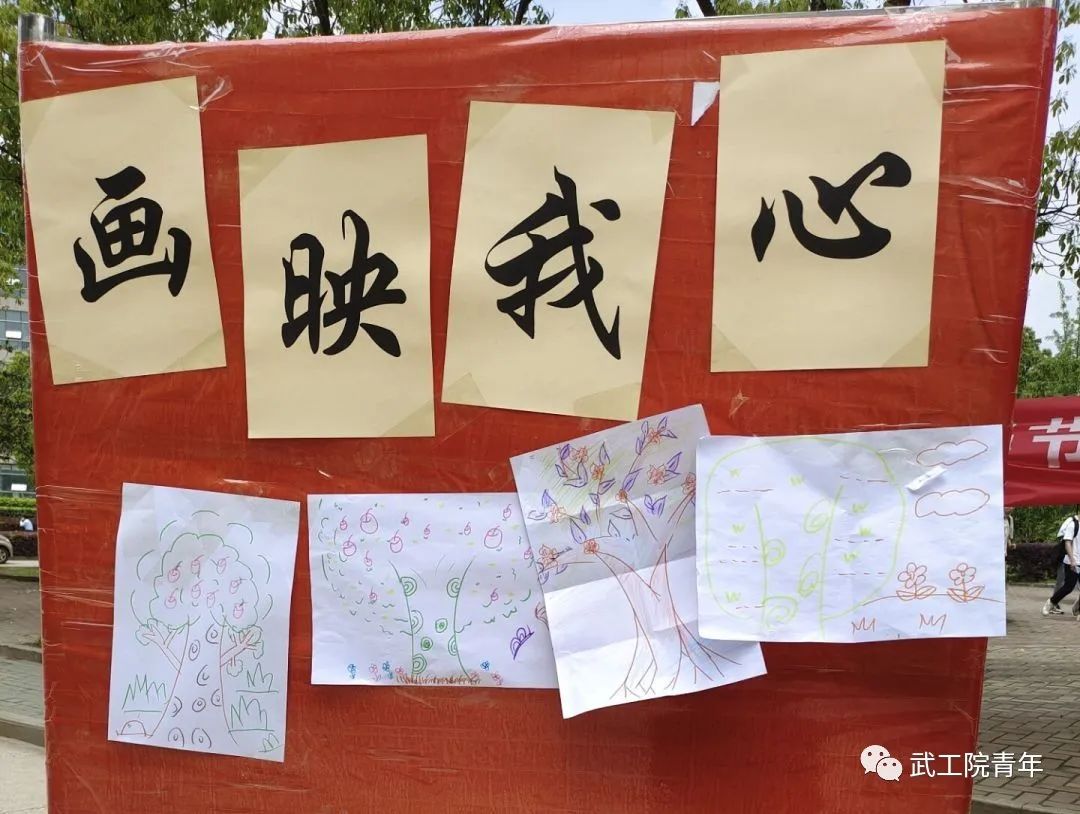 画映我心
节
武工院青年